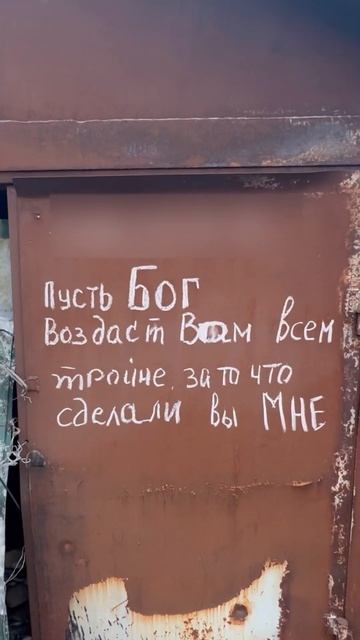 Пусть БОГ
Воздаст Вам всем
тройне, за то что
сделали вы МНЕ